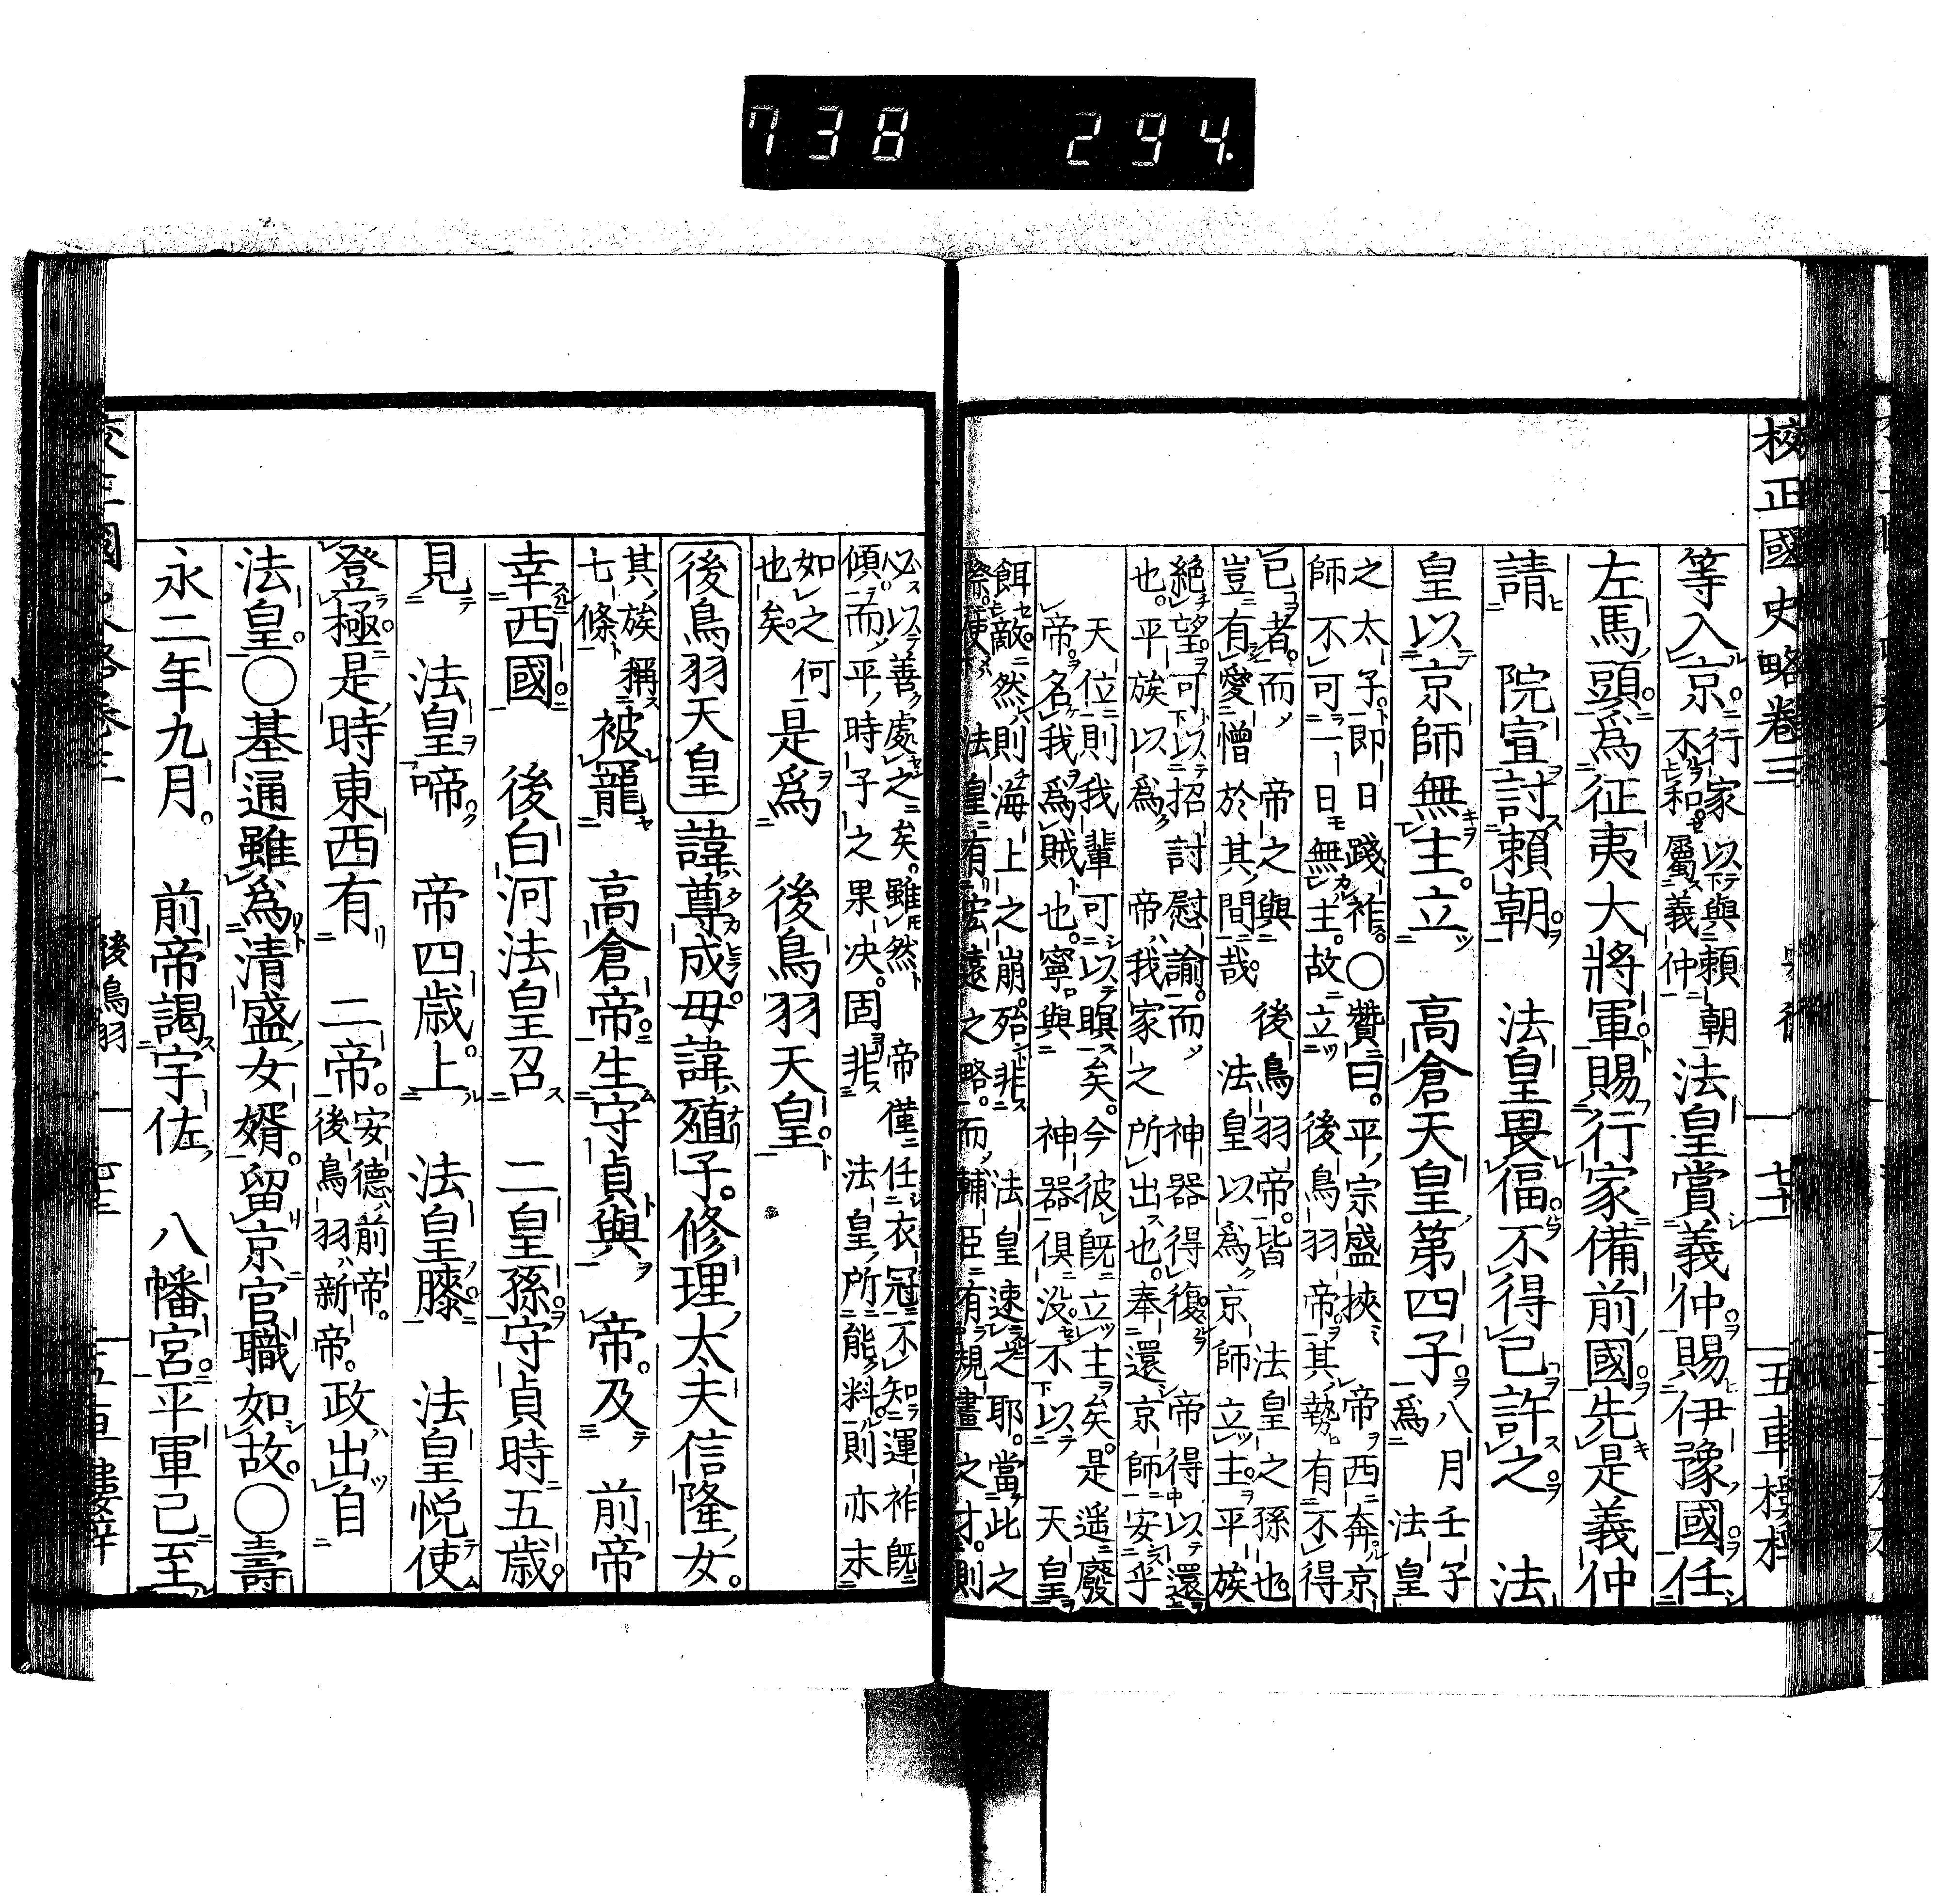 738 294
校正國史略卷三
等入京。行家以與賴朝
不和。屬義仲
法皇賞義仲。賜伊豫國任
左馬頭。爲征夷大將軍。賜行家備前國。先是義仲
請 院宣討賴朝。 法皇畏偪。不得已許之。 法
皇以京師無主。立 高倉天皇第四子。爲
八月壬子
法皇
之太子。卽日踐祚。○贊曰。平宗盛挾 帝西奔。京
師不可一日無主。故立 後鳥羽帝。其勢有不得
已者。而 帝之與 後鳥羽帝。皆 法皇之孫也。
豈有愛憎於其間哉。 法皇以爲。京師立主。平族
絕望。可以招討慰諭。而 神器得復。 帝得以還
也。平族以爲。 帝我家之所出也。奉還京師安乎。
天位則我輩可以瞑矣。今彼旣立主矣。是遥廢
帝。名我爲賊也。寧與 神器俱没。不以 天皇
餌敵。然則海上之崩。殆非 法皇速之耶。當此之
際。使 法皇有宏遠之略。而輔臣有規畫之才。則
必以善處之矣。雖然 帝僅任衣冠不知運祚旣
傾。而平時子之果决。固非 法皇所能料。則亦末
如之何
也矣。
是爲 後鳥羽天皇。
後鳥羽天皇 諱尊成。母諱殖子。修理大夫信隆女。
其族稱
七條
被寵 高倉帝。生守貞與 帝。及 前帝
幸西國。 後白河法皇召 二皇孫。守貞時五歲。
見 法皇啼。 帝四歲。上 法皇膝。 法皇悦使
登極。是時東西有 二帝。
安德前帝。
後鳥羽新帝。
政出自
法皇。○基通雖爲清盛女婿。留京官職如故。○壽
永二年九月。 前帝謁宇佐 八幡宮。平軍已至
後鳥羽